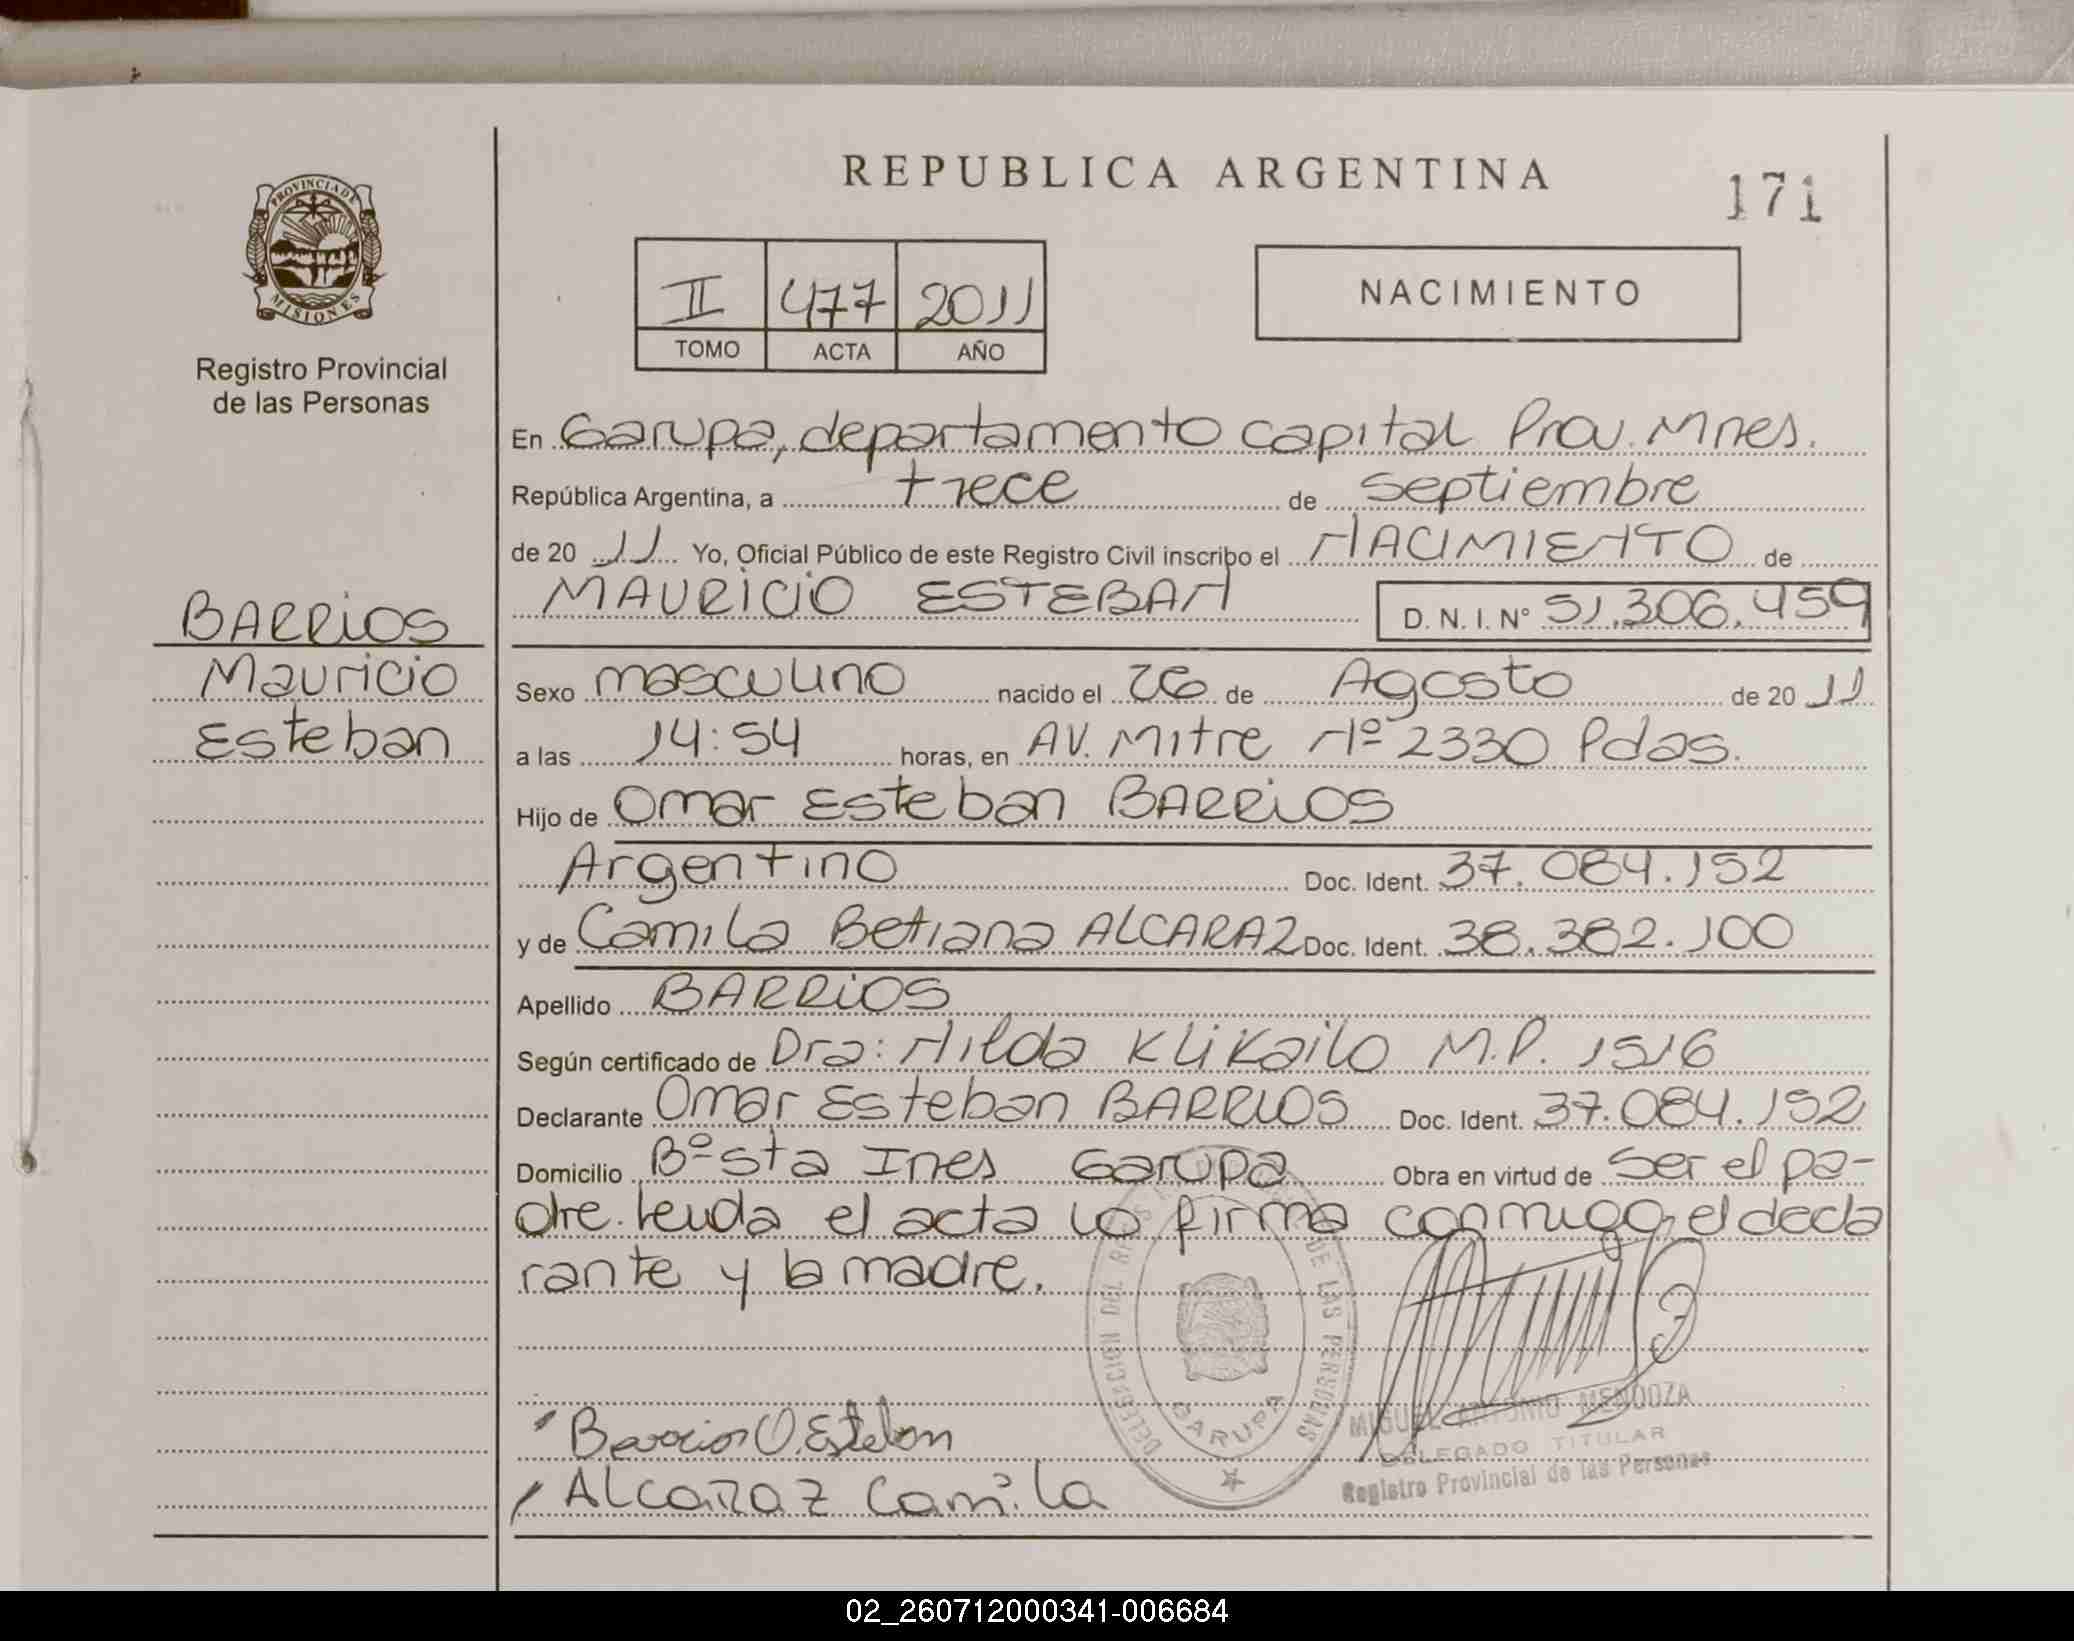 REPUBLICA ARGENTINA
171
PROVINCIA DE
MISIONES
Registro Provincial
de las Personas
II 477 2011
TOMO ACTA AÑO
NACIMIENTO
En Garupa, departamento capital Prov. Mnes.
República Argentina, a trece de septiembre
de 20 11 Yo, Oficial Público de este Registro Civil inscribo el NACIMIENTO de
MAURICIO ESTEBAN D. N. I. N° 51.306.459
BARRIOS
Mauricio
Esteban
Sexo masculino nacido el 26 de Agosto de 20 11
a las 14:54 horas, en AV. Mitre Nº 2330 Pdas.
Hijo de Omar Esteban BARRIOS
Argentino Doc. Ident. 37.084.152
y de Camila Betiana ALCARAZ Doc. Ident. 38.382.100
Apellido BARRIOS
Según certificado de Dra: Hilda Klikailo M.P. 1516
Declarante Omar Esteban BARRIOS Doc. Ident. 37.084.152
Domicilio Bº sta Ines Garupa Obra en virtud de ser el pa-
dre. leida el acta la firma conmigo, el decla
rante y la madre.
DELEGACION DEL REGISTRO DE LAS PERSONAS
GARUPA
Barrios O. Esteban
Alcaraz Camila
MIGUEL ANTONIO MENDOZA
DELEGADO TITULAR
Registro Provincial de las Personas
02_260712000341-006684